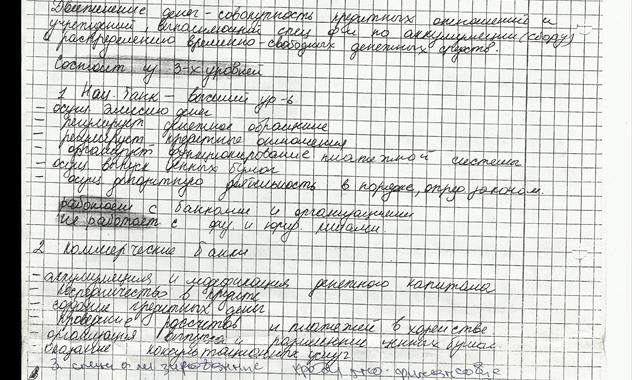 Движение денег - совокупность кредитных отношений и
учреждений, выполняющий спец ф-ии по аккумуляции (сбору)
и распределению временно-свободных денежных средств.
Состоит из 3-х уровней
1 Нац. банк - высший ур-ь
осущ эмиссию денег
- регулирует денежное обращение
- регулирует кредитные отношения
- организует функционирование платёжной системы
- осущ выпуск ценных бумаг
- осущ депозитную деятельность в порядке, опред законом.
работает с банками и организациями
не работает с физ. и юрид. лицами.
2 коммерческие банки
- аккумуляция и модификация денежного капитала
посредничество в кредите
создание кредитных денег
проведение рассчётов и платежей в хозяйстве
организация выпуска и размещения ценных бумаг
оказание консультационных услуг
3 специализированные кредитно-финансовые